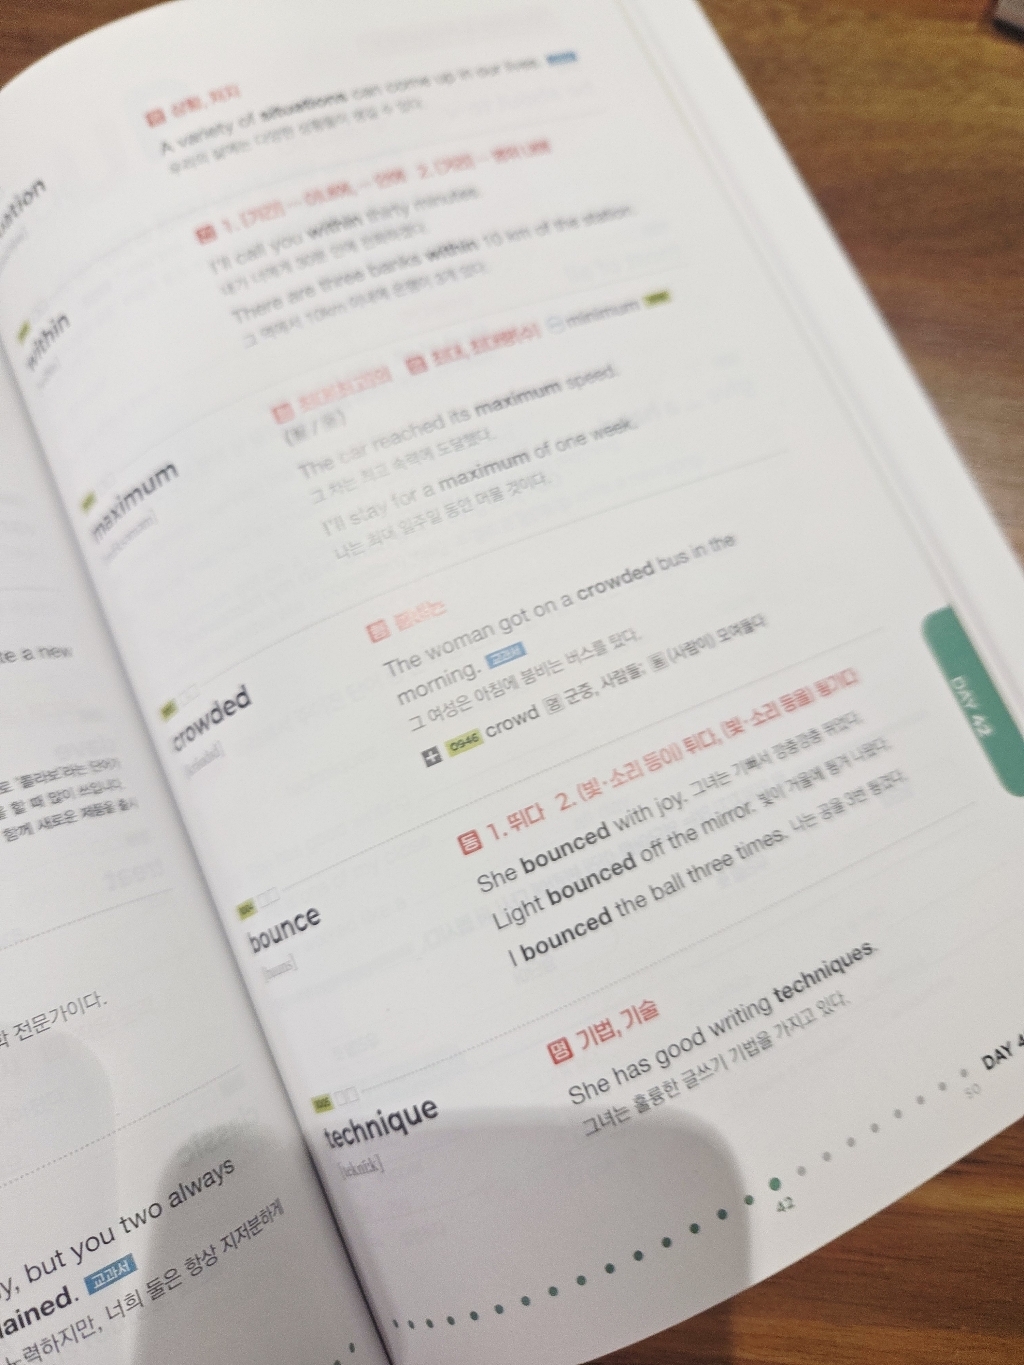 명 상황, 처지
A variety of situations can come up in our lives.
우리의 삶에는 다양한 상황들이 생길 수 있다.
within
I'll call you within thirty minutes.
내가 너에게 30분 안에 전화하겠다.
There are three banks within 10 km of the station.
그 역에서 10km 이내에 은행이 3개 있다.
maximum
최대, 최대량(수) minimum
The car reached its maximum speed.
그 차는 최고 속력에 도달했다.
I'll stay for a maximum of one week.
나는 최대 일주일 동안 머물 것이다.
crowded
형 붐비는
The woman got on a crowded bus in the
morning. 교과서
그 여성은 아침에 붐비는 버스를 탔다.
0946 crowd 명 군중, 사람들; 동 (사람이) 모여들다
bounce
동 1. 튀다 2. (빛·소리 등이) 튀다, (빛·소리 등을) 튕기다
She bounced with joy. 그녀는 기뻐서 깡충깡충 뛰었다.
Light bounced off the mirror. 빛이 거울에 튕겨 나왔다.
I bounced the ball three times. 나는 공을 3번 튕겼다.
technique
명 기법, 기술
She has good writing techniques.
그녀는 훌륭한 글쓰기 기법을 가지고 있다.
DAY 42
42
50
DAY 4
te a new
할 때 많이 쓰입니다.
함께 새로운 제품을 출시
전문가이다.
y, but you two always
lained. 교과서
노력하지만, 너희 둘은 항상 지저분하게